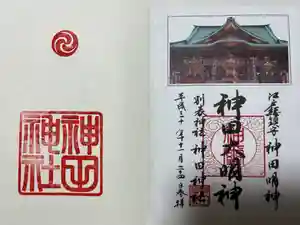 江戸総鎮守 神田明神
神田大明神
別表神社 神田神社
平成三十年十一月二四日奉拝
神田
神社